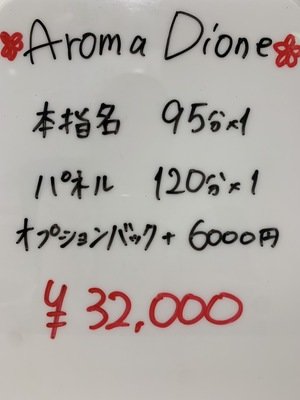 Aroma Dione
本指名 95分×1
パネル 120分×1
オプションバック+6000円
¥32,000